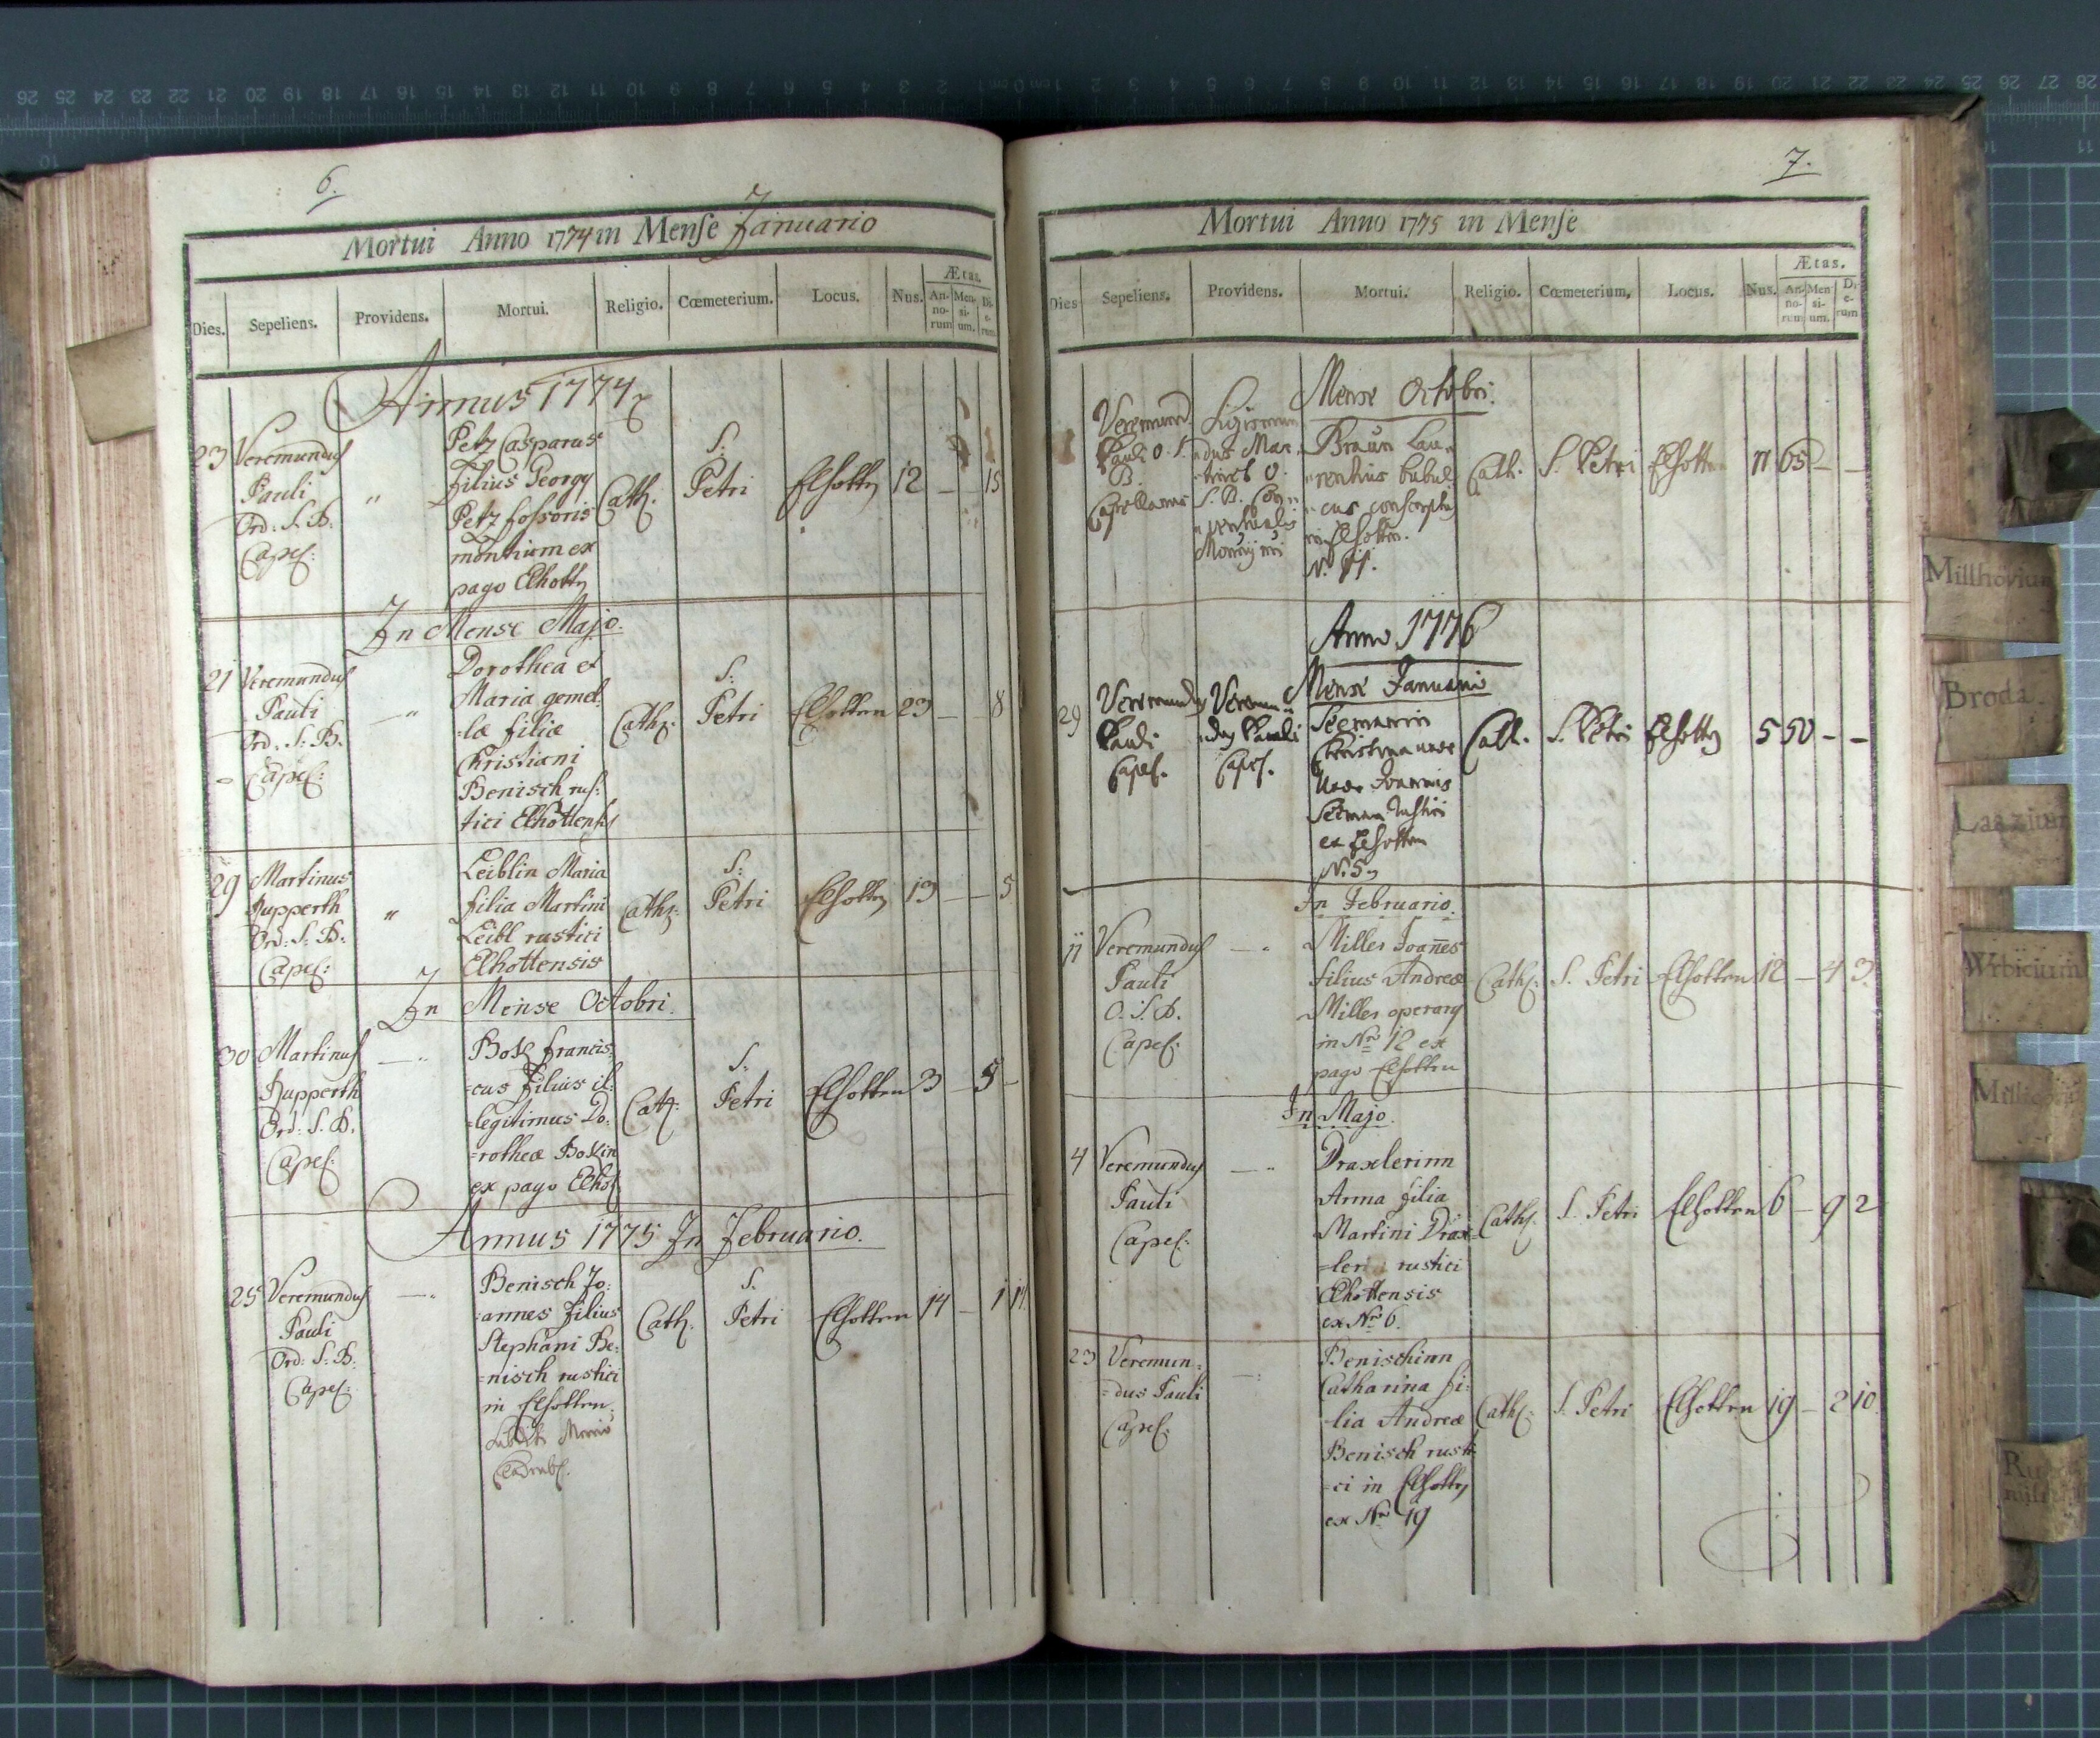 6.
Mortui Anno 1774 in Mense Januario
Dies. Sepeliens. Providens. Mortui. Religio. Cœmeterium. Locus. Nus. Ætas.
An-no-rum Men-si-um. Di-e-rum
Annus 1774
23 Veremundus Pauli Ord: S: B: Capel: " Petz Casparus
filius Georgy
Petz fossoris
montium ex
pago Elhotten
Cath. S: Petri Elhotten 12 — — 15
In Mense Majo.
21 Veremundus Pauli Ord: S: B: Capel: —" Dorothea et
Maria gemel:
=læ filiæ
Christiani
Benisch rus:
tici Elhottensis
Cath: S: Petri Elhotten 23 — — 8
29 Martinus Rupperth Ord: S: B: Capel: " Leiblin Maria
filia Martini
Leibl rustici
Elhottensis
Cath: S: Petri Elhotten 19 — — 5
In Mense Octobri.
30 Martinus Rupperth Ord: S. B. Capel: —" Bok francis:
=cus filius il:
=legitimus Do:
=rotheæ Bokin
ex pago Elhot
Cath: S. Petri Elhotten 3 — 5 —
Annus 1775 In Februario.
25 Veremundus Pauli Ord: S: B: Capel: —" Benisch Jo:
=annes filius
Stephani Be:
=nisch rustici
in Elhotten.
Cath. S. Petri Elhotten 14 — 1 14
7.
Mortui Anno 1775 in Mense
Dies Sepeliens. Providens. Mortui. Religio. Cœmeterium. Locus. Nus. Ætas.
An-no-rum Men-si-um. Di-e-rum
Mense Octobri.
Veremund Pauli O. S. B. Capellanus
Braun Lau-
rentius
in Elhotten.
N. 11.
Cath. S. Petri Elhotten 11 65 — —
Anno 1776
Mense Januario
29 Veremundus Pauli Capel. Veremundus Pauli Capel. Seemanin
Christina
Joannis
Seeman rustici
ex Elhotten
N. 5
Cath. S. Petri Elhotten 5 50 - -
In Februario.
11 Veremundus Pauli O. S. B. Capel: —" Miller Joannes
filius Andreæ
Miller operary
in Nro 12 ex
pago Elhotten
Cath: S. Petri Elhotten 12 — 4 3.
In Majo.
4 Veremundus Pauli Capel: —" Draxlerinn
Anna filia
Martini Drax=
=leri rustici
Elhottensis
ex Nro 6.
Cath: S. Petri Elhotten 6 — 9 2
23 Veremun:
=dus Pauli Capel: Benischinn
Catharina fi:
=lia Andreæ
Benisch rusti
=ci in Elhotten
ex Nro 19
Cath: S. Petri Elhotten 19 — 2 10.
Millhovium
Broda
Laaziturn
Wrbicium